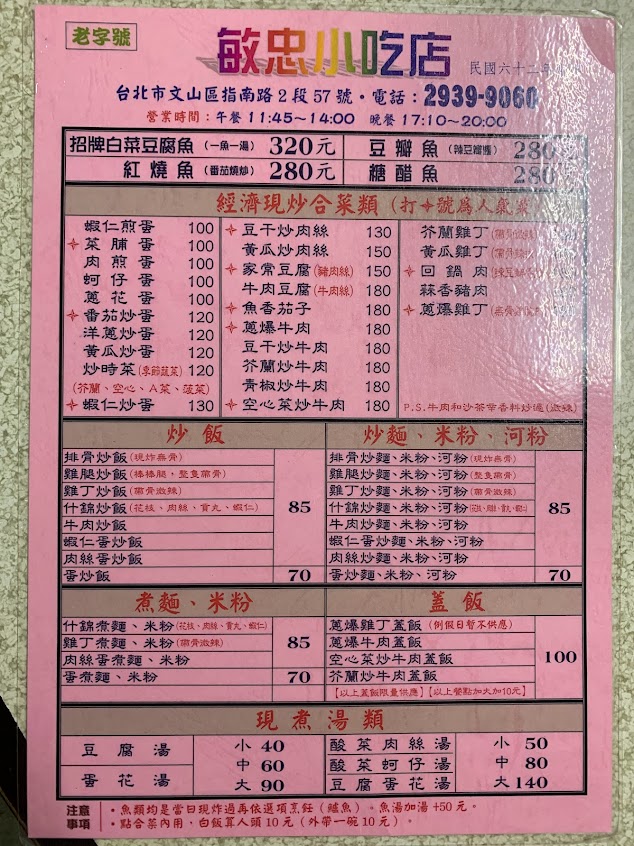 老字號
敏忠小吃店
民國六十二年
台北市文山區指南路2段57號・電話：2939-9060
營業時間：午餐 11:45～14:00 晚餐 17:10～20:00
招牌白菜豆腐魚（一魚一湯） 320元
豆瓣魚（辣豆瓣醬） 280
紅燒魚（番茄燒炒） 280元
糖醋魚 280
經濟現炒合菜類（打✦號為人氣菜
蝦仁煎蛋 100
✦菜脯蛋 100
肉煎蛋 100
蚵仔蛋 100
蔥花蛋 100
✦番茄炒蛋 120
洋蔥炒蛋 120
黃瓜炒蛋 120
炒時菜（季節蔬菜） 120
（芥蘭、空心、A菜、菠菜）
✦蝦仁炒蛋 130
✦豆干炒肉絲 130
黃瓜炒肉絲 150
✦家常豆腐（豬肉絲） 150
牛肉豆腐（牛肉絲） 180
✦魚香茄子 180
✦蔥爆牛肉 180
豆干炒牛肉 180
芥蘭炒牛肉 180
青椒炒牛肉 180
✦空心菜炒牛肉 180
芥蘭雞丁
黃瓜雞丁
✦回鍋肉
蒜香豬肉
✦蔥爆雞丁
P.S.牛肉和沙茶帶香料炒過（微辣）
炒飯
排骨炒飯（現炸無骨）
雞腿炒飯（棒棒腿，整隻帶骨）
雞丁炒飯（帶骨微辣）
什錦炒飯（花枝、肉絲、貢丸、蝦仁）
85
牛肉炒飯
蝦仁蛋炒飯
肉絲蛋炒飯
蛋炒飯 70
炒麵、米粉、河粉
排骨炒麵、米粉、河粉（現炸無骨）
雞腿炒麵、米粉、河粉（整隻帶骨）
雞丁炒麵、米粉、河粉（帶骨微辣）
什錦炒麵、米粉、河粉
85
牛肉炒麵、米粉、河粉
蝦仁蛋炒麵、米粉、河粉
肉絲炒麵、米粉、河粉
蛋炒麵、米粉、河粉 70
煮麵、米粉
什錦煮麵、米粉（花枝、肉絲、貢丸、蝦仁）
雞丁煮麵、米粉（帶骨微辣） 85
肉絲蛋煮麵、米粉
蛋煮麵、米粉 70
蓋飯
蔥爆雞丁蓋飯（例假日暫不供應）
蔥爆牛肉蓋飯
空心菜炒牛肉蓋飯 100
芥蘭炒牛肉蓋飯
【以上蓋飯限量供應】【以上餐點加大加10元】
現煮湯類
豆腐湯
蛋花湯
小 40
中 60
大 90
酸菜肉絲湯
酸菜蚵仔湯
豆腐蛋花湯
小 50
中 80
大 140
注意事項
・魚類均是當日現炸過再依選項烹飪（鱸魚）。魚湯加湯+50元。
・點合菜內用，白飯算人頭10元（外帶一碗10元）。